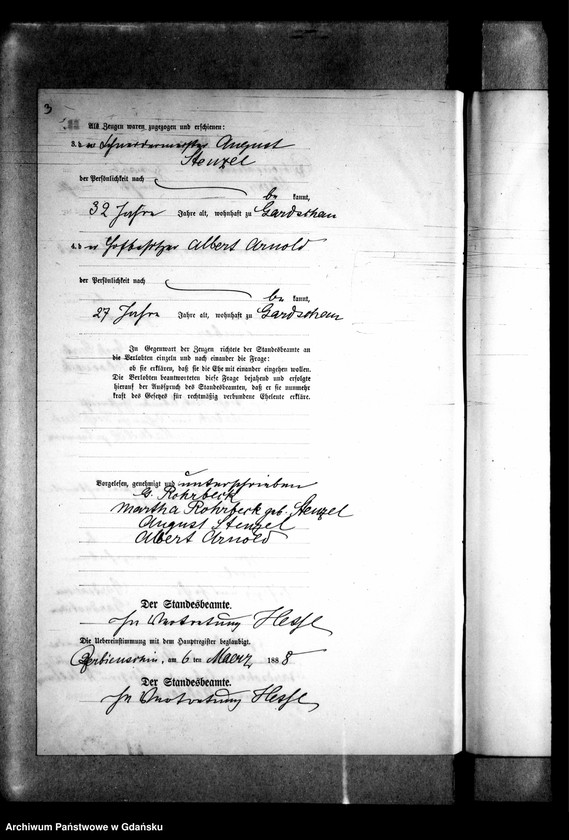 3
Als Zeugen waren zugezogen und erschienen:
3. der Schneidermeister August
Stenzel
der Persönlichkeit nach
be kannt,
32 Jahre Jahre alt, wohnhaft zu Gardschau
4. der Hofbesitzer Albert Arnold
der Persönlichkeit nach
be kannt,
27 Jahre Jahre alt, wohnhaft zu Gardschau
In Gegenwart der Zeugen richtete der Standesbeamte an
die Verlobten einzeln und nach einander die Frage:
ob sie erklären, daß sie die Ehe mit einander eingehen wollen.
Die Verlobten beantworteten diese Frage bejahend und erfolgte
hierauf der Ausspruch des Standesbeamten, daß er sie nunmehr
kraft des Gesetzes für rechtmäßig verbundene Eheleute erkläre.
Vorgelesen, genehmigt und unterschrieben
G. Rohrbeck
Martha Rohrbeck geb. Stenzel
August Stenzel
Albert Arnold
Der Standesbeamte.
In Vertretung
Die Uebereinstimmung mit dem Hauptregister beglaubigt.
am 6 ten Maerz 1888
Der Standesbeamte.
In Vertretung
Archiwum Państwowe w Gdańsku